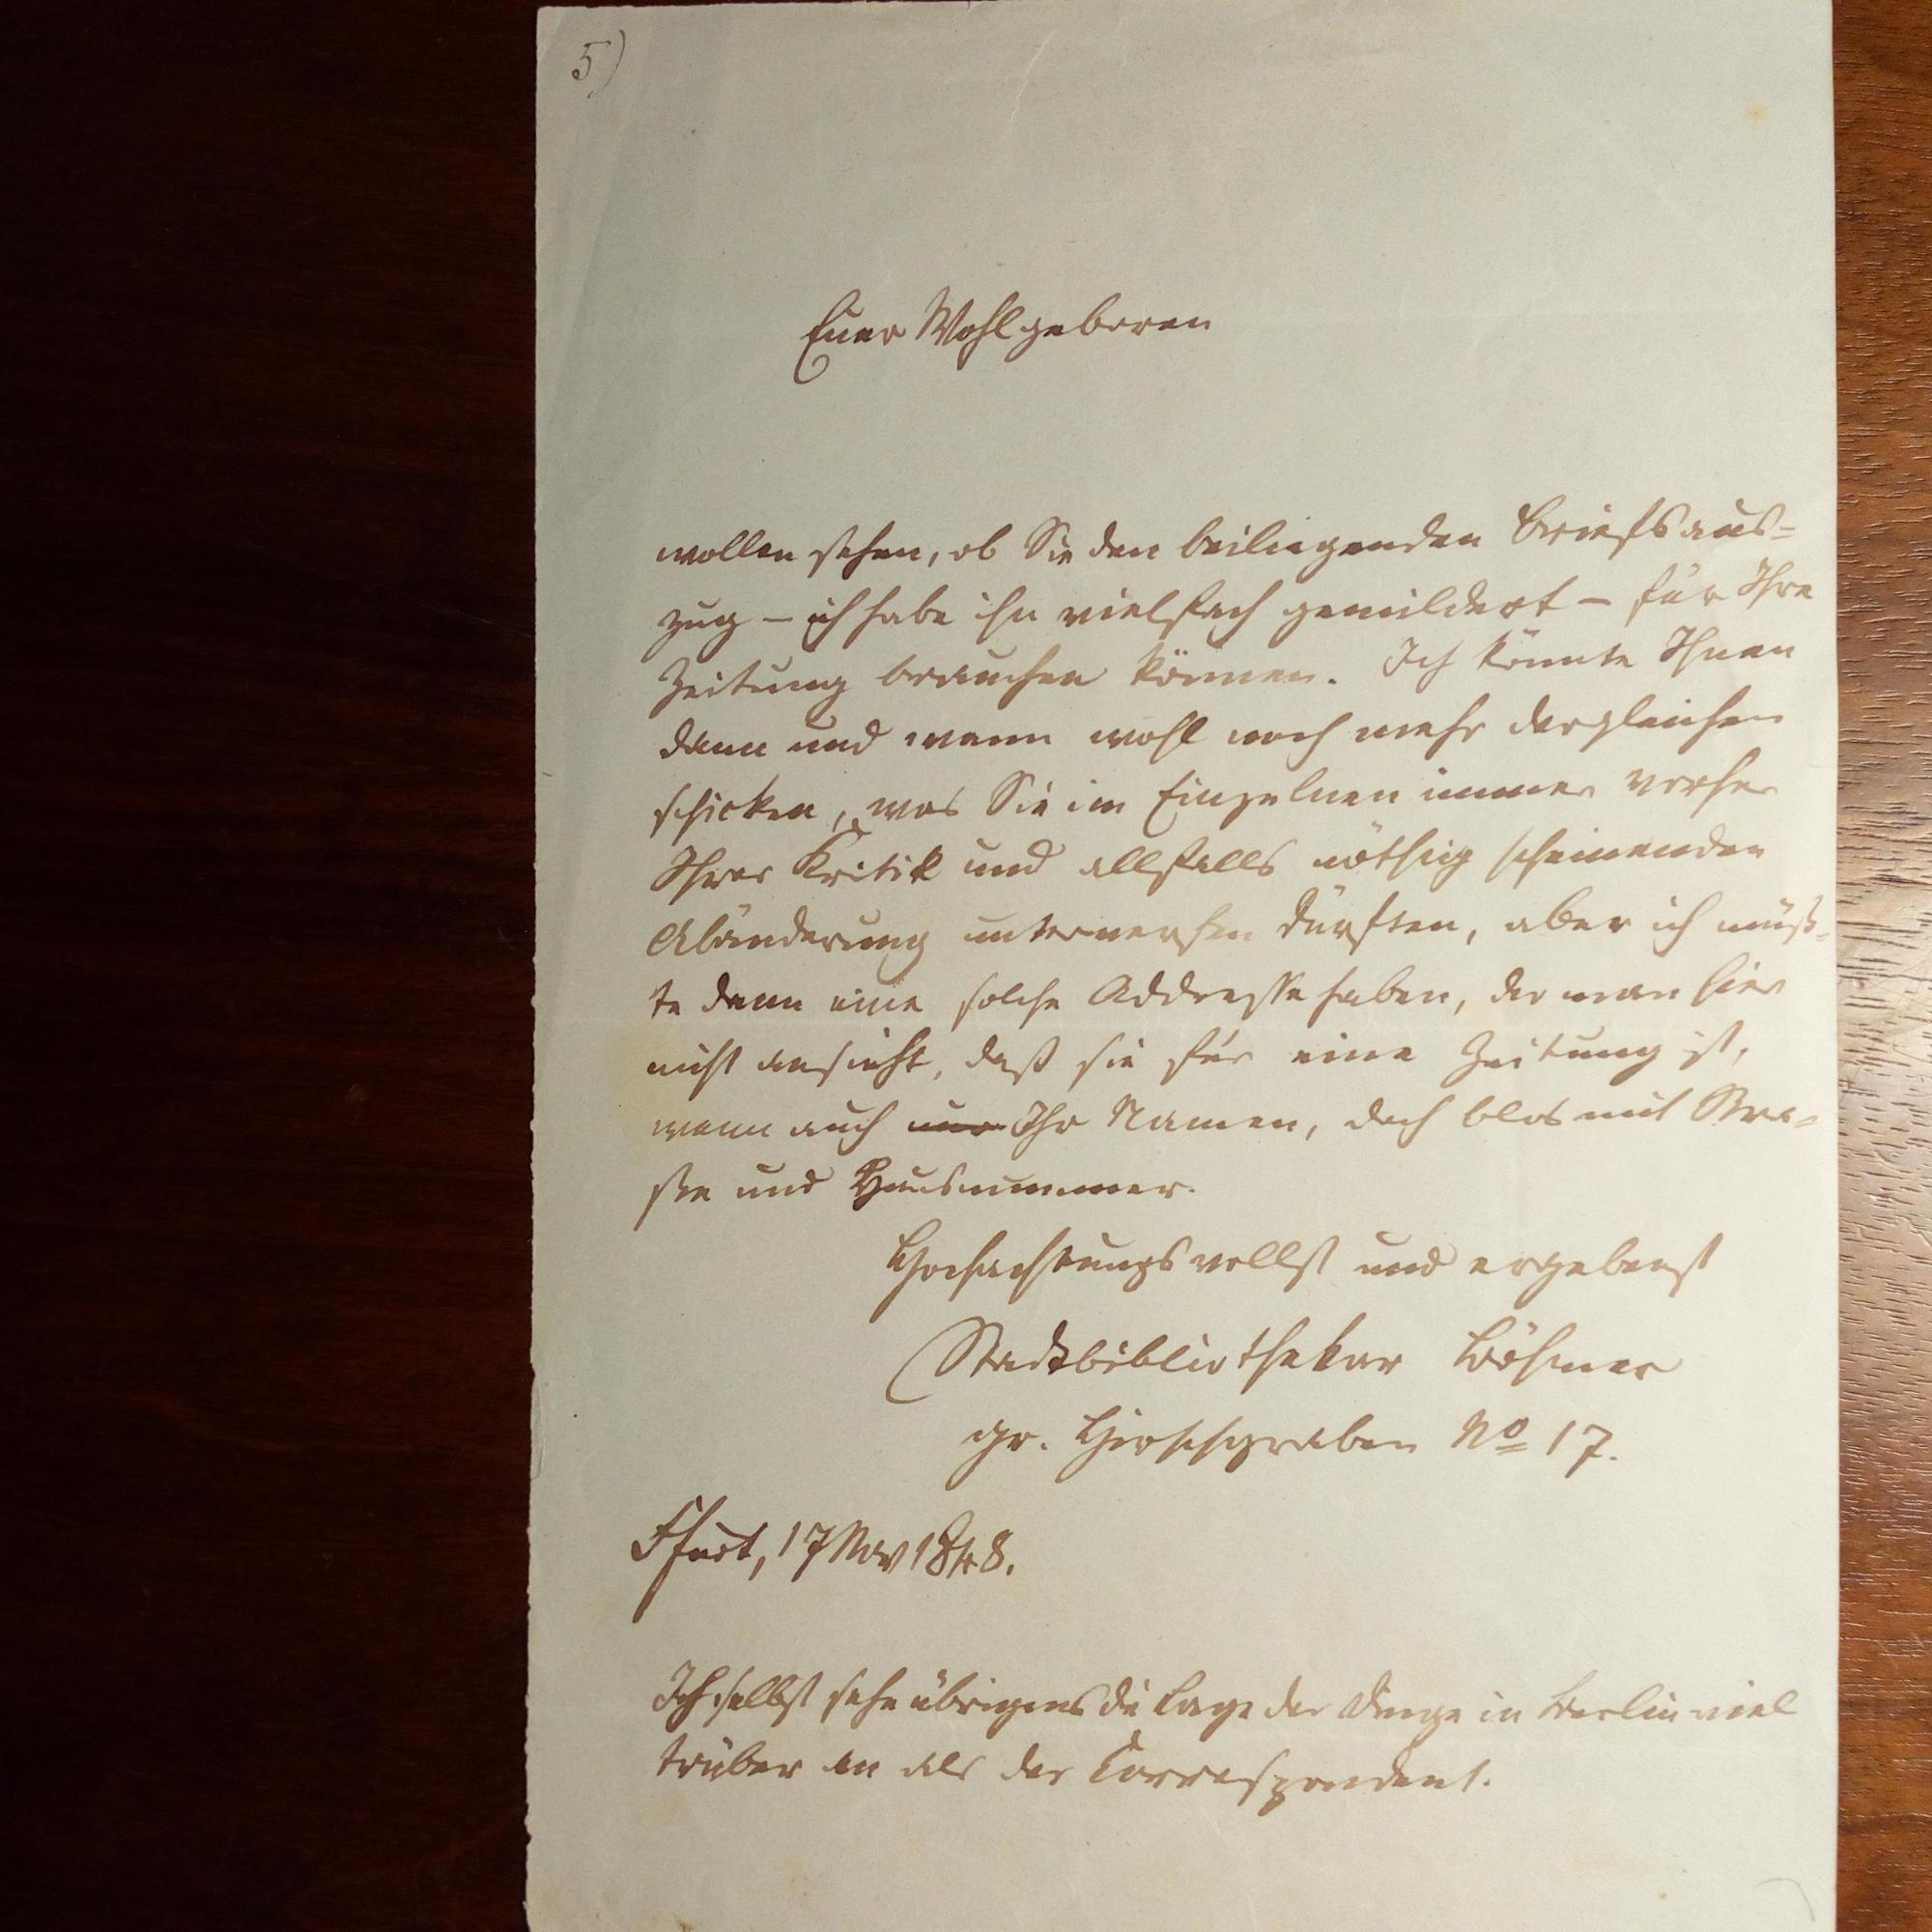 5)
Euer Wohlgeboren
wollen sehen, ob Sie den beiliegenden Briefsaus=
zug – ich habe ihn vielfach gemildert – für Ihre
Zeitung brauchen können. Ich könnte Ihnen
dann und wann wohl noch mehr dergleichen
schicken, was Sie im Einzelnen immer vorher
Ihrer Kritik und allfalls nöthig scheinenden
Abänderung unterwerfen dürften, aber ich müß=
te dann eine solche Addresse haben, der man hier
nicht ansieht, daß sie für eine Zeitung ist,
wenn auch nur Ihr Namen, doch blos mit Stra=
ße und Hausnummer.
Hochachtungsvollst und ergebenst
Stadtbibliothekar Böhmer
gr. Hirschgraben No 17.
Ffurt, 17 Nov 1848.
Ich selbst sehe übrigens die Lage der Dinge in Berlin viel
trüber an als der Correspondent.